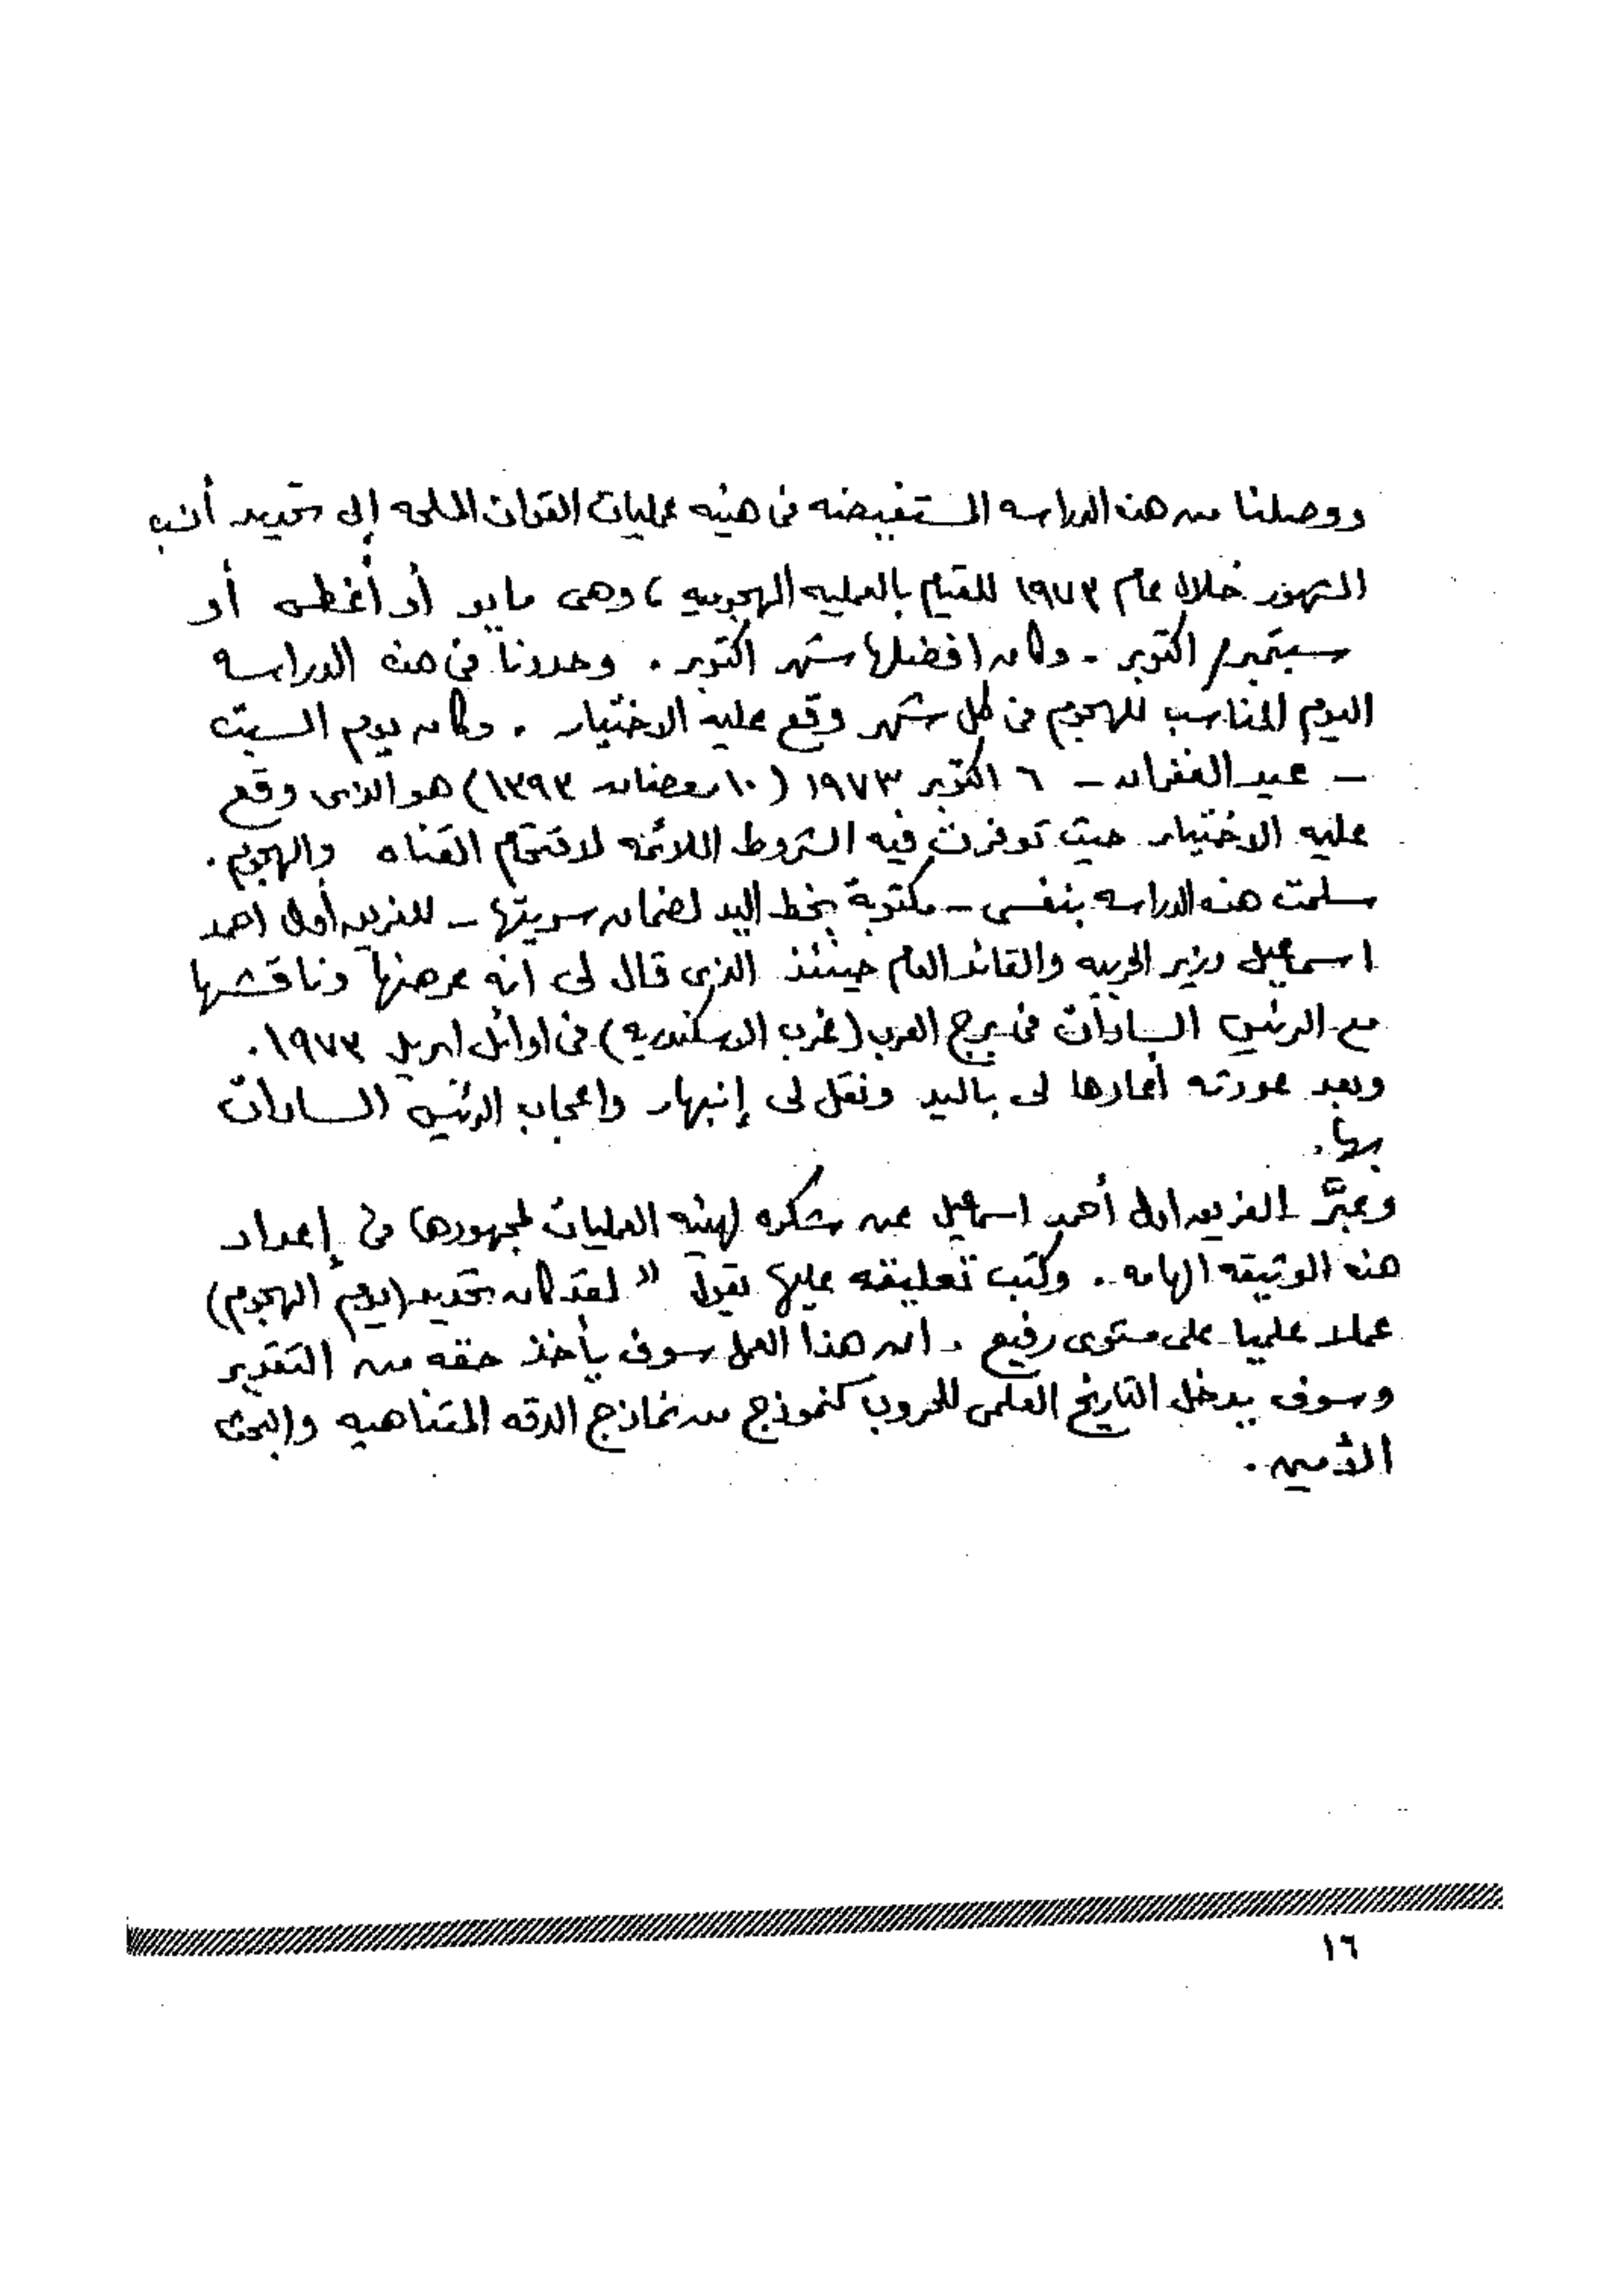 ووصلنا من هذه الدراسه المستفيضه فى هيئه عمليات القوات المسلحه إلى تحديد أنسب
الشهور خلال عام ١٩٧٣ للقيام بالعمليه الهجوميه ، وهى مايو أو أغطس أو
سبتمبر / اكتوبر . وكان افضلها شهر اكتوبر . وحددنا فى هذه الدراسه
اليوم المناسب للهجوم فى كل شهر وقع عليه الاختيار . وكان يوم السبت
– عيد الغفران – ٦ اكتوبر ١٩٧٣ (١٠ رمضان ١٣٩٣) هو الذى وقع
عليه الاختيار حيث توفرت فيه الشروط اللائمه لاقتحام القناه والهجوم .
سلمت هذه الدراسه بنفسى – مكتوبة بخط اليد لضمان سريتها – للفريق أول احمد
اسماعيل وزير الحربيه والقائد العام حينئذ الذى قال لى أنه عرضها وناقشها
مع الرئيس السادات فى برج العرب (غرب الاسكندريه) فى اوائل ابريل ١٩٧٣ .
وبعد عودته أعادها لى باليد ونقل لى إنبهار واعجاب الرئيس السادات
بها .
وعبَّر الفريق اول أحمد اسماعيل عن شكره لهيئه العمليات لمجهودها فى إعداد
هذه الوثيقه الهامه . وكتب تعليقه عليها يقول " لقد كان تحديد (يوم الهجوم)
عملا علميا على مستوى رفيع . ان هذا العمل سوف يأخذ حقه من التقدير
وسوف يدخل التاريخ العلمى للحروب كنموذج من نماذج الدقه المتناهيه والبحث
الأمين .
١٦